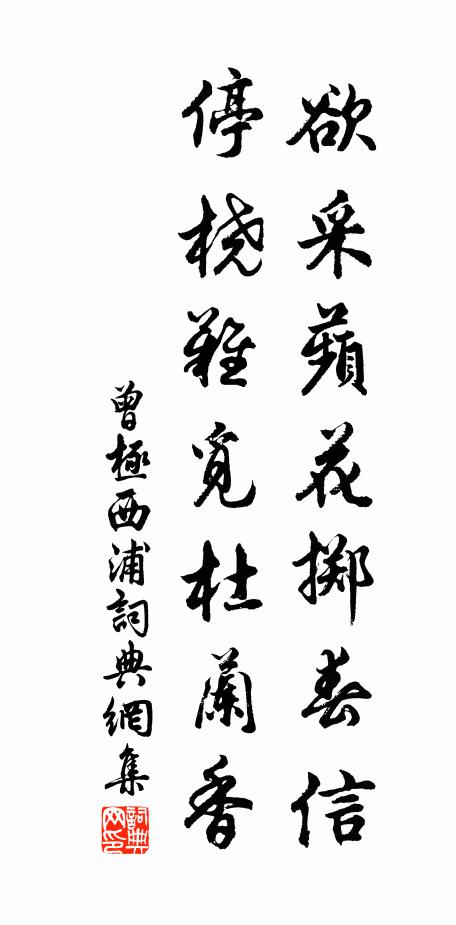 欲采蘋花擲春信
停橈難覓杜蘭香
曾極西浦詞典網集
詞典網印